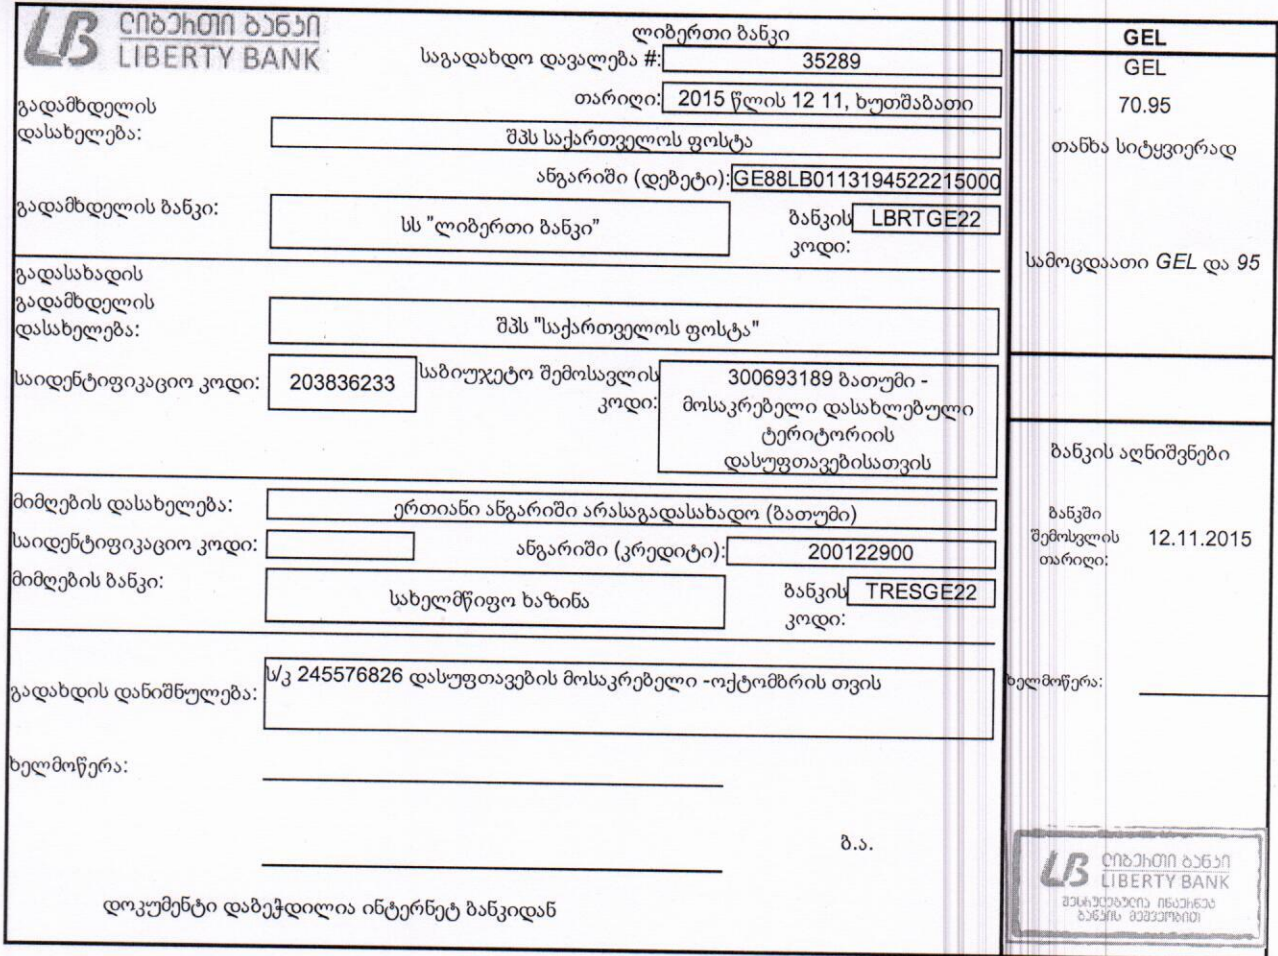 ლიბერთი ბანკი
LIBERTY BANK
ლიბერთი ბანკი
საგადახდო დავალება #: 35289
თარიღი: 2015 წლის 12 11, ხუთშაბათი
გადამხდელის
დასახელება: შპს საქართველოს ფოსტა
ანგარიში (დებეტი): GE88LB0113194522215000
გადამხდელის ბანკი: სს "ლიბერთი ბანკი" ბანკის LBRTGE22
კოდი:
გადასახადის
გადამხდელის
დასახელება: შპს "საქართველოს ფოსტა"
საიდენტიფიკაციო კოდი: 203836233 საბიუჯეტო შემოსავლის
კოდი:
300693189 ბათუმი -
მოსაკრებელი დასახლებული
ტერიტორიის
დასუფთავებისათვის
მიმღების დასახელება: ერთიანი ანგარიში არასაგადასახადო (ბათუმი)
საიდენტიფიკაციო კოდი: ანგარიში (კრედიტი): 200122900
მიმღების ბანკი: სახელმწიფო ხაზინა ბანკის TRESGE22
კოდი:
გადახდის დანიშნულება: ს/კ 245576826 დასუფთავების მოსაკრებელი -ოქტომბრის თვის
ხელმოწერა:
ბ.ა.
დოკუმენტი დაბეჭდილია ინტერნეტ ბანკიდან
GEL
GEL
70.95
თანხა სიტყვიერად
სამოცდაათი GEL და 95
ბანკის აღნიშვნები
ბანკში
შემოსვლის 12.11.2015
თარიღი:
ხელმოწერა:
ლიბერთი ბანკი
LIBERTY BANK
შესრულებულია ინტერნეტ
ბანკის მეშვეობით